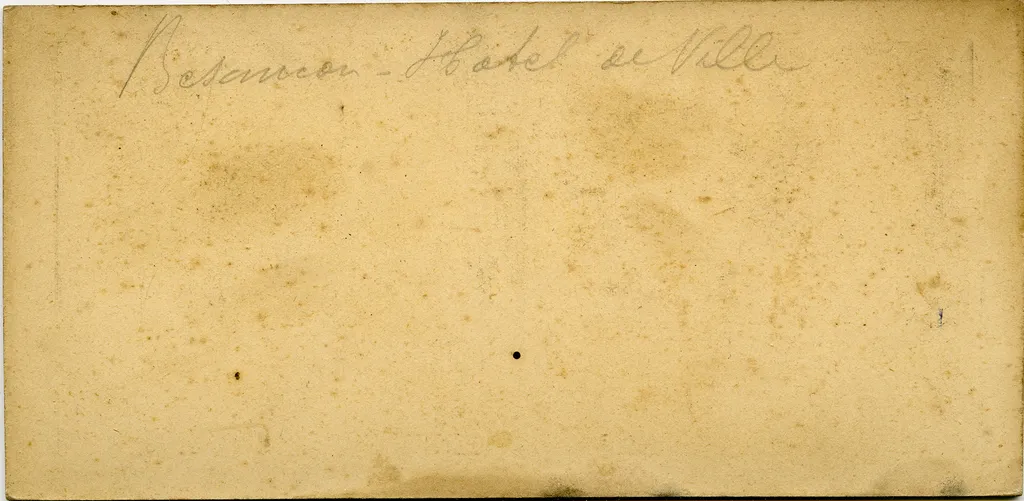 Besancon - Hotel de Ville